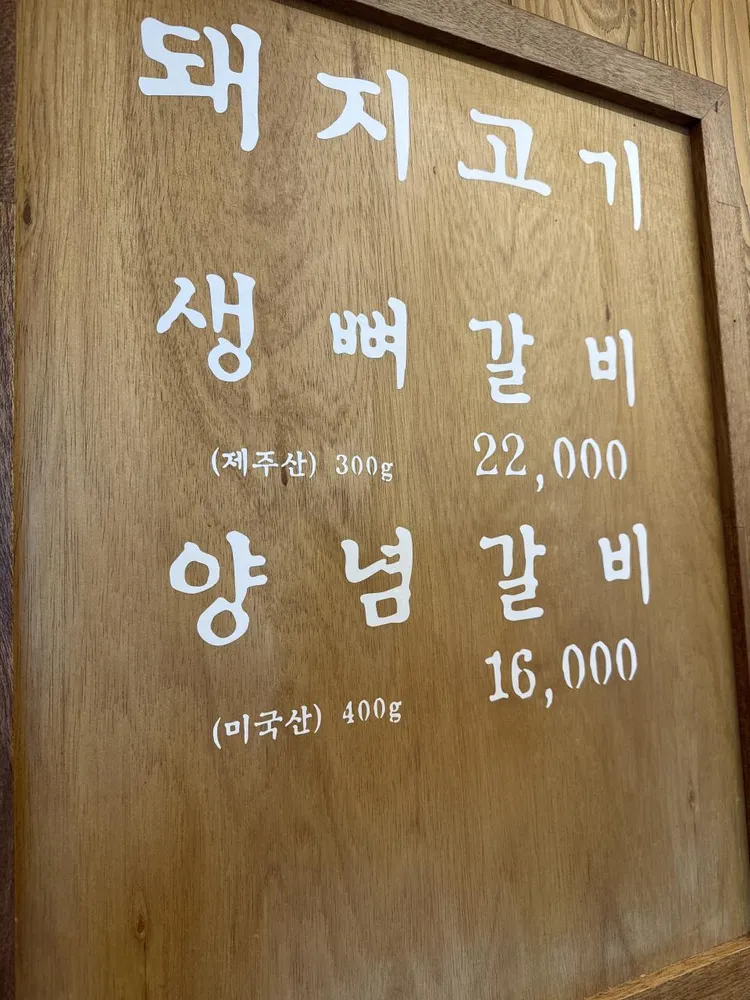 돼지고기
생뼈갈비
(제주산) 300g 22,000
양념갈비
16,000
(미국산) 400g